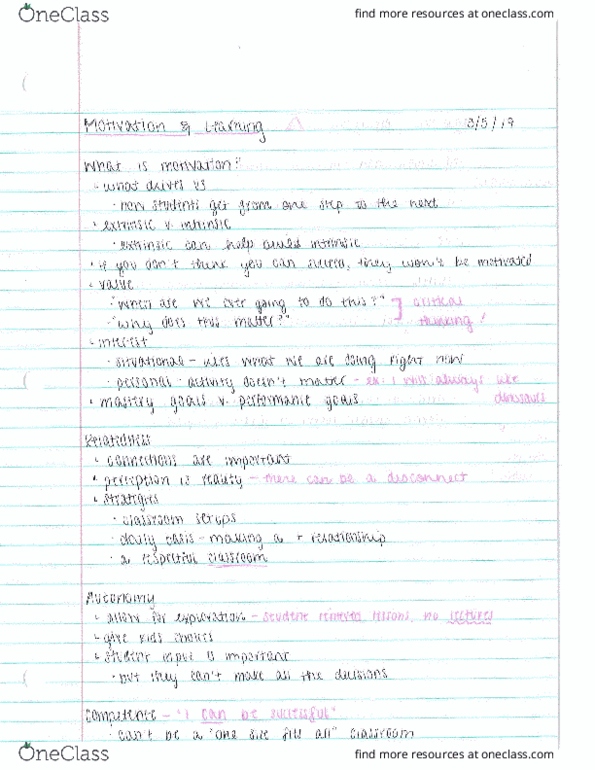 OneClass
find more resources at oneclass.com
Motivation & Learning 3/5/17
What is motivation?
- what drives us
· how students get from one step to the next
- extrinsic v. intrinsic
· extrinsic can help build intrinsic
· if you don't think you can succeed, they won't be motivated
- value
· "when are we ever going to do this?" } critical
· "why does this matter?" thinking!
- interest
· situational - likes what we are doing right now
· personal - activity doesn't matter - ex. I will always like
dinosaurs
· mastery goals v. performance goals
Relatedness
· connections are important
· perception is reality - there can be a disconnect
· strategies
· classroom setups
· daily basis - making a + relationship
· a respectful classroom
Autonomy
· allow for exploration - student centered lessons, no lectures
- give kids choices
· student input is important
· but they can't make all the decisions
Competence - "I can be successful"
· can't be a "one size fits all" classroom
OneClass
find more resources at oneclass.com